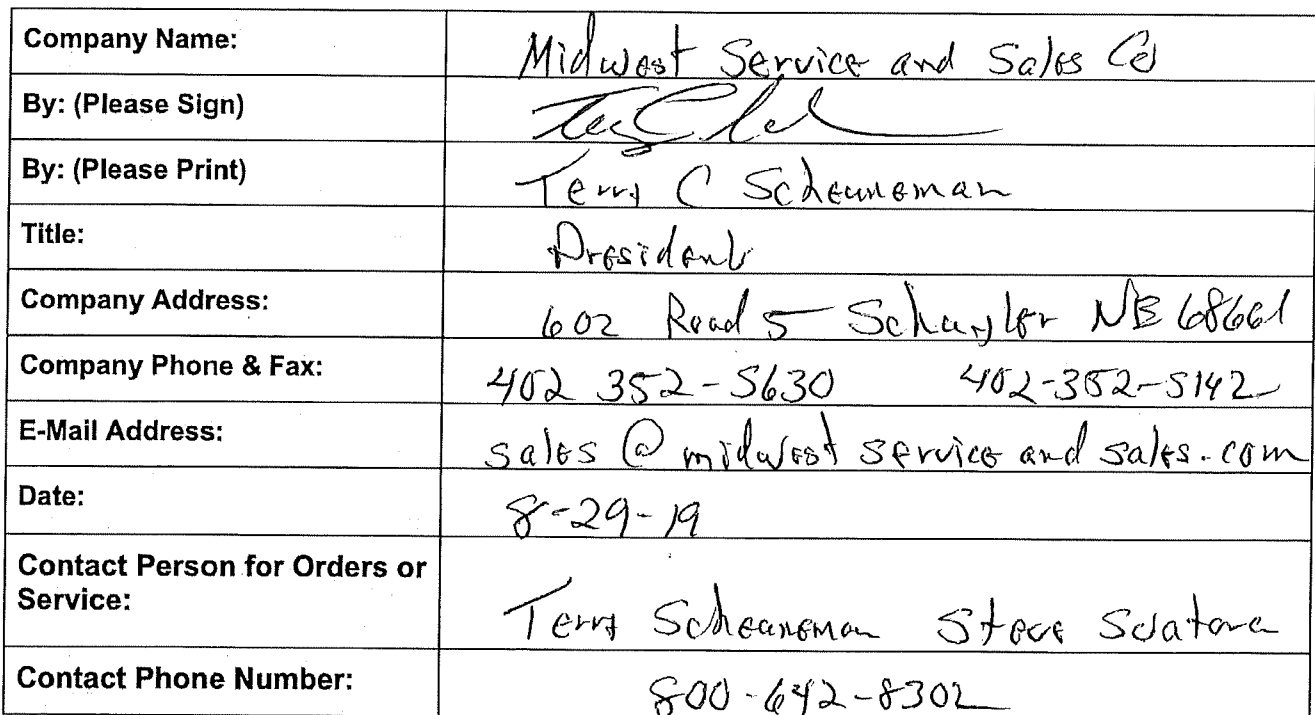 Company Name: Midwest Service and Sales Co
By: (Please Sign)
By: (Please Print) Terry C Scheuneman
Title: President
Company Address: 602 Road 5 Schuyler NE 68661
Company Phone & Fax: 402 352-5630 402-352-5142
E-Mail Address: sales@midwestserviceandsales.com
Date: 8-29-19
Contact Person for Orders or
Service: Terry Scheuneman Steve
Contact Phone Number: 800-642-8302